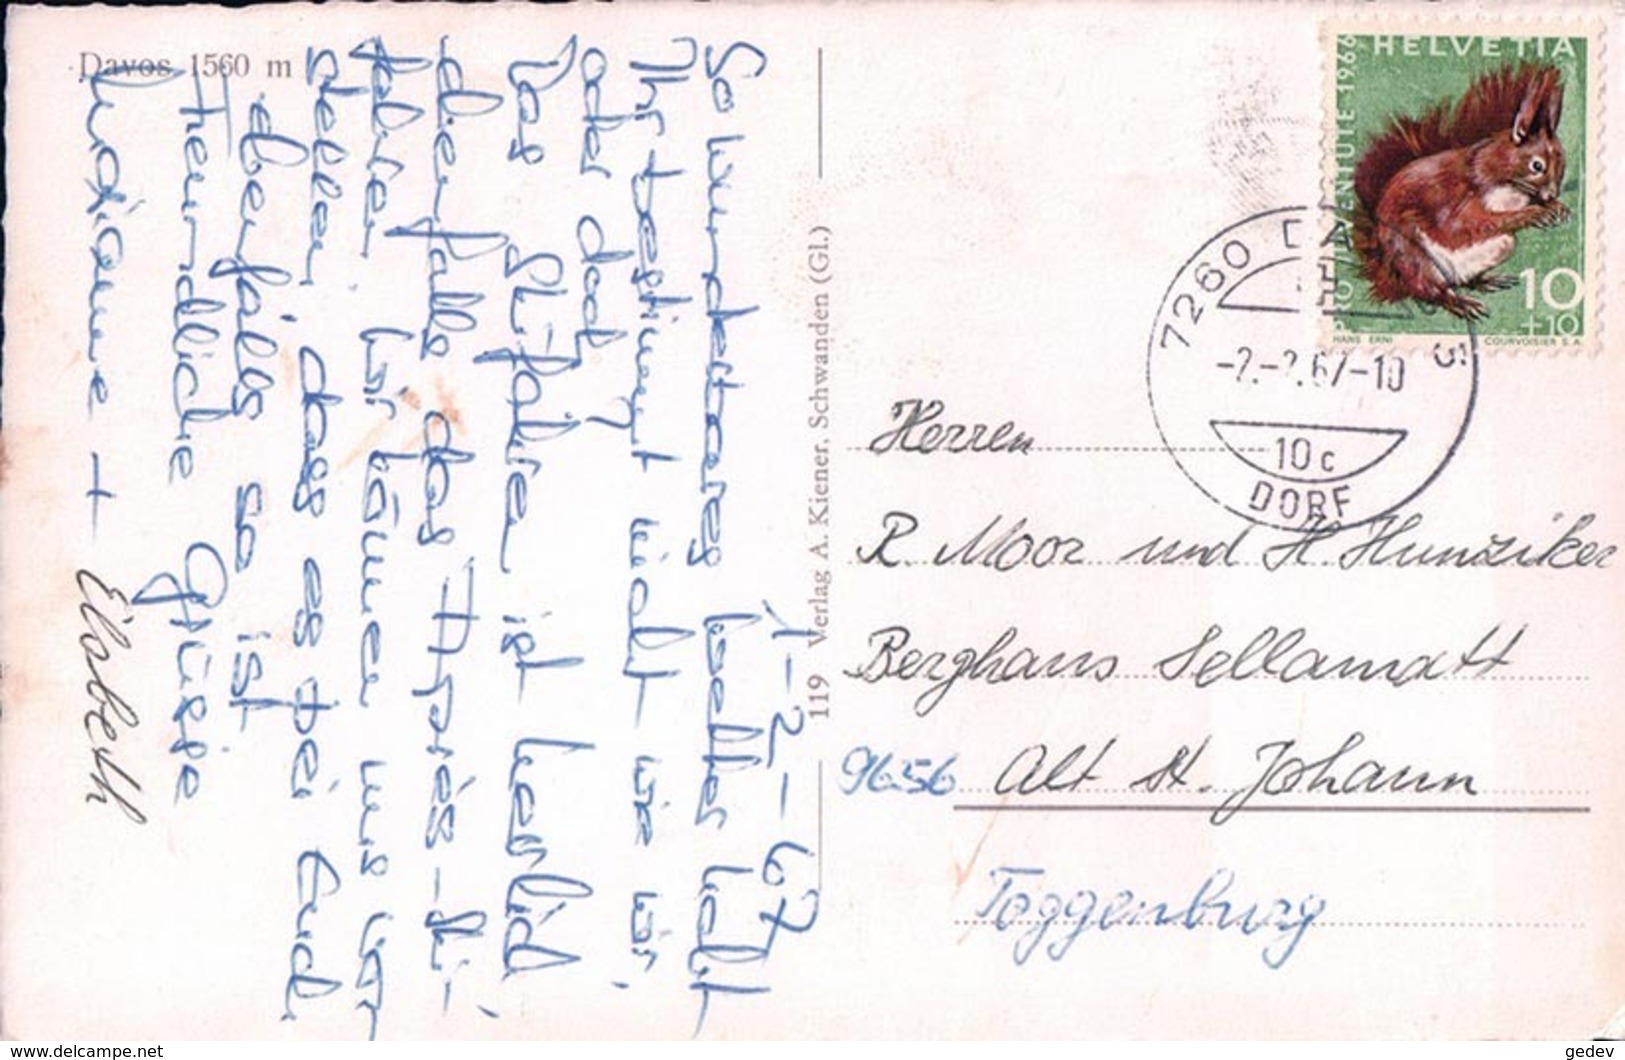 Davos 1560 m
1-2-67
So wunderbares Wetter habt
Ihr bestimmt nicht wie wir
oder doch?
Das Skifahren ist herrlich
ebenfalls das Après-Ski-
fahren. Wir können uns vor
stellen, dass es bei Euch
ebenfalls so ist.
Freundliche Grüsse
+ Elsbeth
119 Verlag A. Kiener, Schwanden (Gl.)
HELVETIA
PRO JUVENTUTE 1966
10
+10
HANS ERNI
COURVOISIER S.A.
7260 DAVOS
-2.-2.67-10
10c
DORF
Herren
R. Moor und H. Hunziker
Berghaus Sellamatt
9656 Alt St. Johann
Toggenburg
delcampe.net
gedev